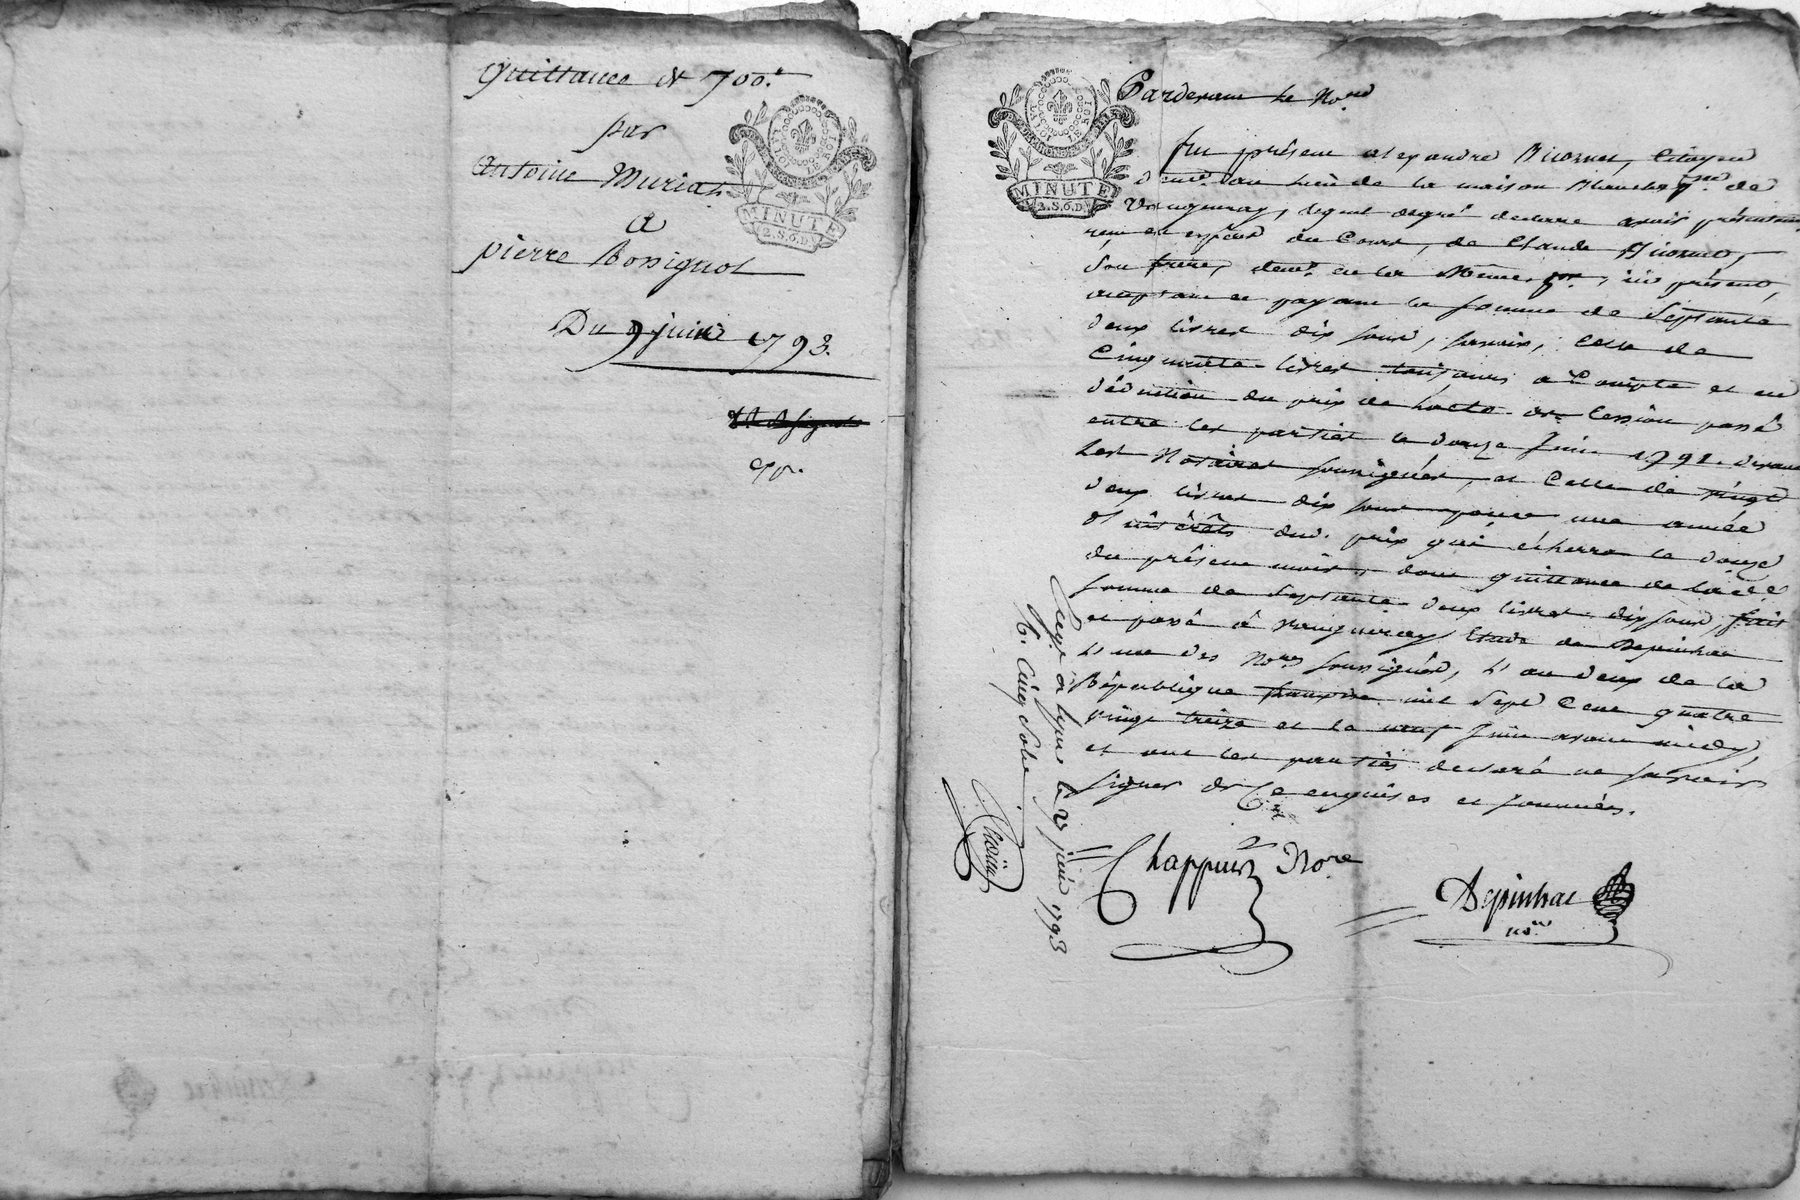 Quittance de 700.ᵗ
par
Antoine Muriat
A
pierre Rossignol
Du 9 juin 1793.
LA LOI LE ROI
MINUTE
2.S.6.D.
LA LOI LE ROI
MINUTE
2.S.6.D.
Pardevant les No.res
fut présent alexandre citoyen
dem.t au lieu de la maison Blanche p.sse de
Vaugneray, lequel de gré declare avoir présentem.t
reçu en espèces du Cours, de Claude
Son frere, dem.t en la même p.sse, ici présent,
acceptant et payant la somme de Septante
deux livres dix sous, savoir, Celle de
Cinquante livres toujours a Compte et en
déduction du prix de l'acte de Cession passé
entre les parties le douze Juin 1791. devant
Les Notaires soussignés, et Celle de vingt
deux livres dix sous pour une année
d'intérêts dud. prix qui écherra le douze
du présent mois, dont quittance de lad.e
somme de Septante deux livres dix sous, fait
et passé à Vaugneray Etude de Depinhac
L'un des No.res soussignés, L'an deux de la
République françoise mil Sept Cent quatre
vingt treize et le neuf Juin avant midy,
et ont les parties declaré ne savoir
signer de Ce enquises et sommées.
Chappuis No.re
Depinhac
no.re
Reg.é à Lyon le juin 1793
R. Cinq Sols